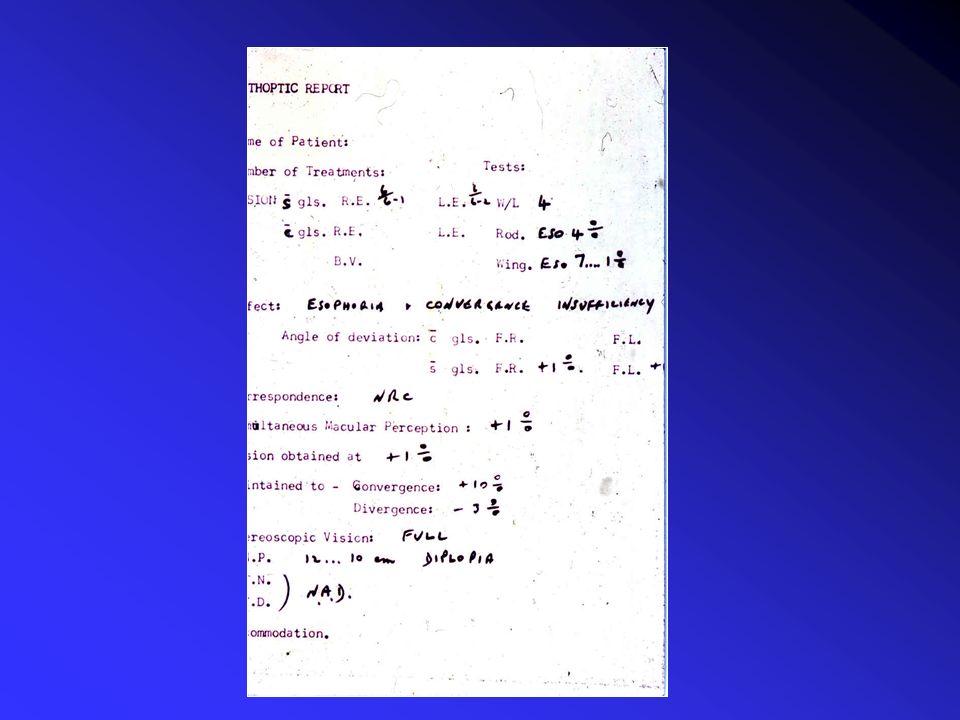 THOPTIC REPORT
me of Patient:
mber of Treatments: Tests:
SION s̄ gls. R.E. 6/6-1 L.E. 6/6-2 W/L 4
c̄ gls. R.E. L.E. Rod. ESO 4 ÷
B.V. Wing. ESO 7....1 ÷
fect: ESOPHORIA + CONVERGANCE INSUFFICIENCY
Angle of deviation: c̄ gls. F.R. F.L.
s̄ gls. F.R. +1 ÷. F.L. +
rrespondence: NRC
multaneous Macular Perception : +1 ÷
sion obtained at +1 ÷
intained to - Convergence: +10 ÷
Divergence: - 3 ÷
ereoscopic Vision: FULL
.P. 12... 10 cm DIPLOPIA
.N.
.D. ) N.A.D.
ommodation.